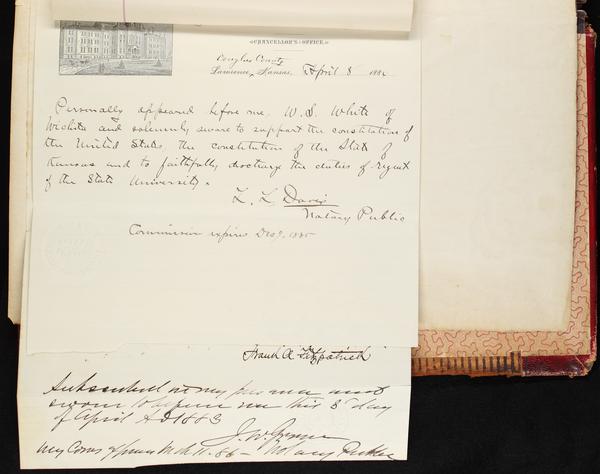 CHANCELLOR'S OFFICE,
Douglas County
Lawrence, Kansas, April 8 188
Personally appeared before me, W. S. White of
Wichita and solemnly sware to support the constitution of
the United States, the constitution of the State of
Kansas and to faithfully discharge the duties of regent
of the State University.
L. L. Davis
Notary Public
Commission expires Dec 9, 1885
Frank A Fitzpatrick
Subscribed in my presence and
sworn to before me this 8th day
of April AD 1883
J. W.
My Com Expires Mch 11. 86 - Notary Public